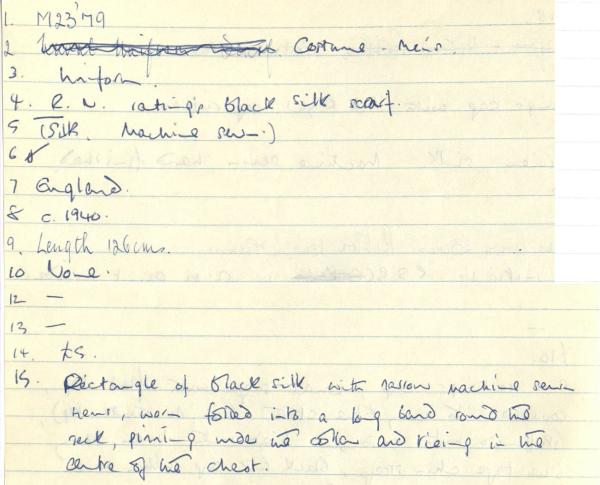 1. M23'79
2 Costume - Men's.
3. Uniform.
4. R.N. rating's black silk scarf.
5 (Silk. Machine sewn.)
6
7 England.
8 c. 1940.
9. Length 126cms.
10 None.
12 —
13 —
14. £5.
15. Rectangle of black silk with narrow machine sewn
hems, worn folded into a long band round the
neck, pinning under the collar and tieing in the
centre of the chest.